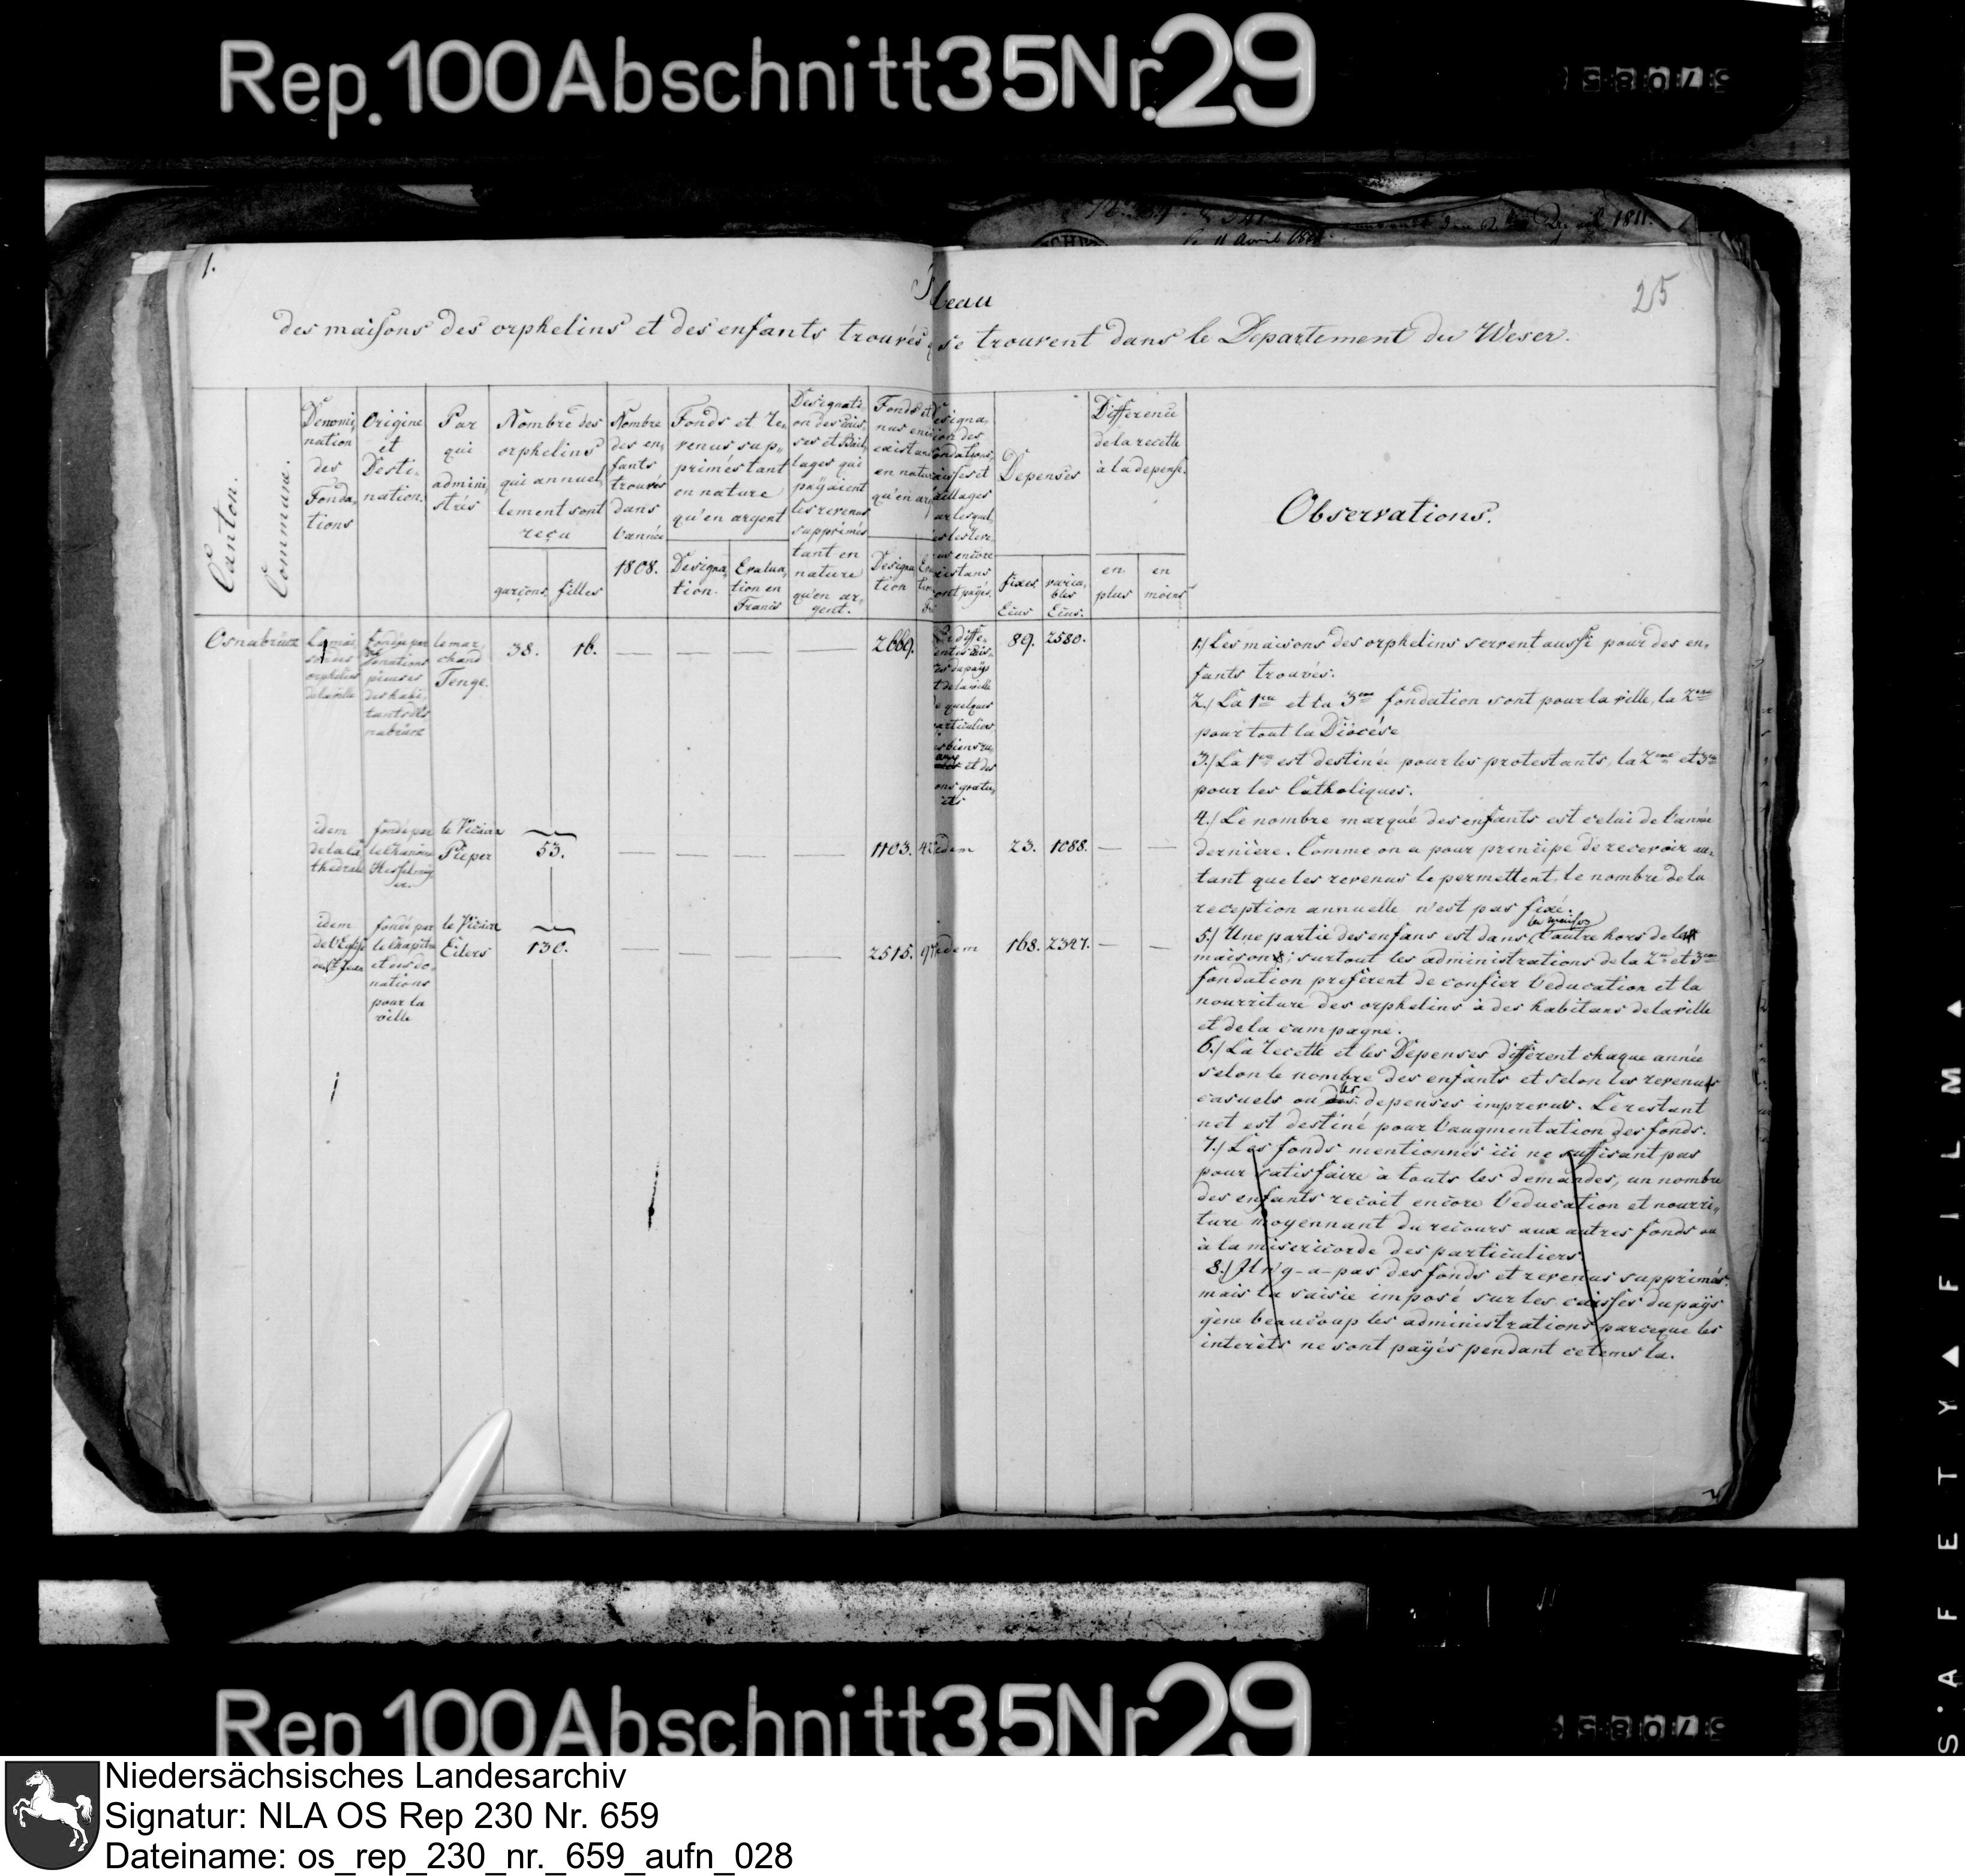 Rep. 100 Abschnitt 35 Nr. 29
le 11 Avril
1811.
1.
25
Tableau
des maisons des orphelins et des enfants trouvés se trouvent dans le Departement du Weser.
Canton.
Commune.
Denomi,
nation
des
Fonda,
tions
Origine
et
Desti,
nation.
Par
qui
admini,
strés
Nombre des
orphelins
qui annuel,
lement sont
reçu
garçons
filles
Nombre
des en,
fants
trouvés
dans
l'année
1808.
Fonds et re,
venus sup,,
primés tant
en nature
qu'en argent
Designa,
tion.
Evalua,
tion en
Francs
Designati
on des cais,
ses et Bail,
lages qui
payaient
les revenus
supprimés
tant en
nature
qu'en ar,
gent.
Fonds et
en nature
qu'en
Designa
tion
Depenses
fixes
Ecus
varia,
bles
Ecus.
Difference
de la recette
à la depense.
en
plus
en
moins
Observations.
Osnabrück
La mai,
son des
orphelins
de la ville
fondée par
donations
pieuses
des habi,
tants d'Os
nabrück
le mar,
chand
Tenge.
38.
16.
2669.
89.
2580.
idem
de la Ca
thedrale
fondé par
le Chanoine
le Vicaire
Pieper
53.
1103.
idem
23.
1088.
idem
de l'Eglise
de St Jean
fondé par
le Chapitre
et des do,
nations
pour la
ville
le Vicaire
Eilers
130.
2515.
idem
168.
2347.
1./ Les maisons des orphelins servent aussi pour des en,
fants trouvés.
2./ La 1re et la 3me fondation sont pour la ville, la 2me
pour tout la Diöcése
3./ La 1re est destinée pour les protestants, la 2me et 3me
pour les Catholiques.
4./ Le nombre marqué des enfants est celui de l'année
dernière. Comme on a pour principe de recevoir au,
tant que les revenus le permettent, le nombre de la
reception annuelle n'est pas fixé.
5./ Une partie des enfans est dans la maison l'autre hors de la
maison; surtout les administrations de la 2me et 3me
fondation preferent de confier l'education et la
nourriture des orphelins à des habitans de la ville
et de la campagne.
6./ La recette et les Depenses different chaque année
selon le nombre des enfants et selon les revenus
casuels ou les depenses imprevus. Le restant
net est destiné pour l'augmentation des fonds.
7./ Les fonds mentionnés ici ne suffisant pas
pour satisfaire à touts les demandes, un nombre
des enfants reçoit encore l'education et nourri,,
ture moyennant du recours aux autres fonds ou
à la misericorde des particuliers.
8./ Il n'y-a-pas des fonds et revenus supprimés,
mais la saisie imposé sur les caisses du païs
gène beaucoup les administrations parceque les
interêts ne sont payés pendant ce tems la.
SAFETY FILM
Rep 100 Abschnitt 35 Nr 29
Niedersächsisches Landesarchiv
Signatur: NLA OS Rep 230 Nr. 659
Dateiname: os_rep_230_nr._659_aufn_028